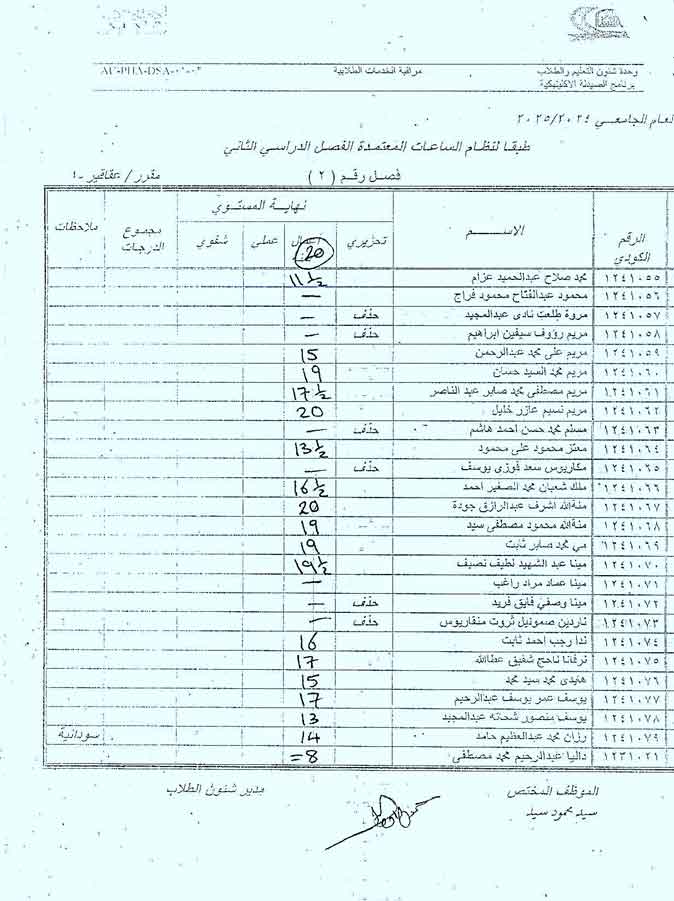 وحدة شئون التعليم والطلاب مراقبة الخدمات الطلابية AU-PHA-DSA-٠١-٠٣
برنامج الصيدلة الاكلينيكية
العام الجامعي ٢٠٢٥/٢٠٢٤
طبقا لنظام الساعات المعتمدة الفصل الدراسي الثاني
فصل رقم (٢) مقرر / عقاقير -١
الرقم الكودي الاســـم نهاية المستوي مجموع الدرجات ملاحظات
تحريري أعمال 20 عملي شفوي
١٢٤١٠٥٥ محمد صلاح عبدالحميد عزام 11 ½
١٢٤١٠٥٦ محمود عبدالفتاح محمود فراج —
١٢٤١٠٥٧ مروة طلعت نادى عبدالمجيد حذف —
١٢٤١٠٥٨ مريم رؤوف سيفين ابراهيم حذف —
١٢٤١٠٥٩ مريم على محمد عبدالرحمن 15
١٢٤١٠٦٠ مريم محمد السيد حسان 19
١٢٤١٠٦١ مريم مصطفى محمد صابر عبد الناصر 17 ½
١٢٤١٠٦٢ مريم نسيم عازر خليل 20
١٢٤١٠٦٣ مسلم محمد حسن احمد هاشم حذف —
١٢٤١٠٦٤ معتز محمود على محمود 13 ½
١٢٤١٠٦٥ مكاريوس سعد فوزى يوسف حذف —
١٢٤١٠٦٦ ملك شعبان محمد الصغير احمد 16 ½
١٢٤١٠٦٧ منةالله اشرف عبدالرازق جودة 20
١٢٤١٠٦٨ منةالله محمود مصطفى سيد 19
١٢٤١٠٦٩ مي محمد صابر ثابت 19
١٢٤١٠٧٠ مينا عبد الشهيد لطيف نصيف 19 ½
١٢٤١٠٧١ مينا عماد مراد راغب —
١٢٤١٠٧٢ مينا وصفي فايق فريد حذف —
١٢٤١٠٧٣ ناردين صموئيل ثروت منقاريوس حذف —
١٢٤١٠٧٤ ندا رجب احمد ثابت 16
١٢٤١٠٧٥ نرفانا ناجح شفيق عطاالله 17
١٢٤١٠٧٦ هنيدى محمد سيد محمد 15
١٢٤١٠٧٧ يوسف عمر يوسف عبدالرحيم 17
١٢٤١٠٧٨ يوسف منصور شحاته عبدالمجيد 13
١٢٤١٠٧٩ رزان محمد عبدالعظيم حامد 14 سودانية
١٢٣١٠٢١ داليا عبدالرحيم محمد مصطفى =8
الموظف المختص مدير شئون الطلاب
سيد محمود سيد